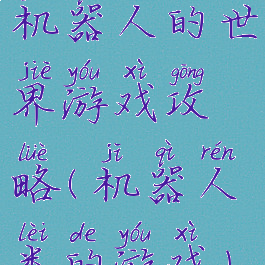 机器人的世
jiè yóu xì gōng
界游戏攻
lüè jī qì rén
略(机器人
lèi de yóu xì
类的游戏)